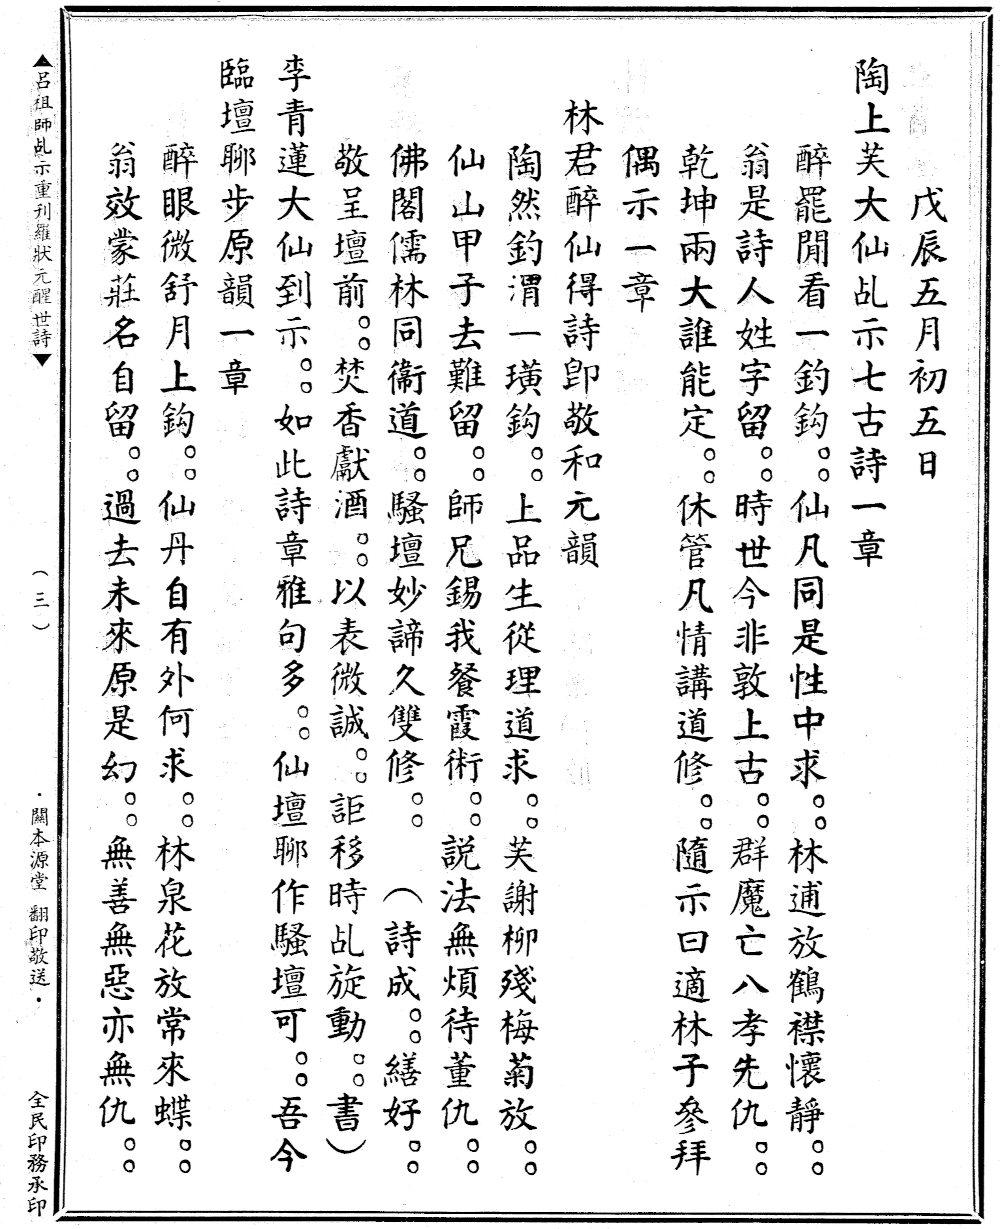 戊辰五月初五日
陶上芙大仙乩示七古詩一章
醉罷閒看一釣鈎。。仙凡同是性中求。。林逋放鶴襟懷靜。。
翁是詩人姓字留。。時世今非敦上古。。群魔亡八孝先仇。。
乾坤兩大誰能定。。休管凡情講道修。。隨示曰適林子參拜
偶示一章
林君醉仙得詩卽敬和元韻
陶然釣渭一璜鈎。。上品生從理道求。。芙謝柳殘梅菊放。。
仙山甲子去難留。。師兄錫我餐霞術。。説法無煩待董仇。。
佛閣儒林同衞道。。騷壇妙諦久雙修。。（詩成。。繕好。。
敬呈壇前。。焚香獻酒。。以表微誠。。詎移時乩旋動。。書）
李青蓮大仙到示。。如此詩章雅句多。。仙壇聊作騷壇可。。吾今
臨壇聊步原韻一章
醉眼微舒月上鈎。。仙丹自有外何求。。林泉花放常來蝶。。
翁效蒙莊名自留。。過去未來原是幻。。無善無惡亦無仇。。
▲呂祖師乩示重刋羅狀元醒世詩▼
（三）
・關本源堂 翻印敬送・
全民印務承印